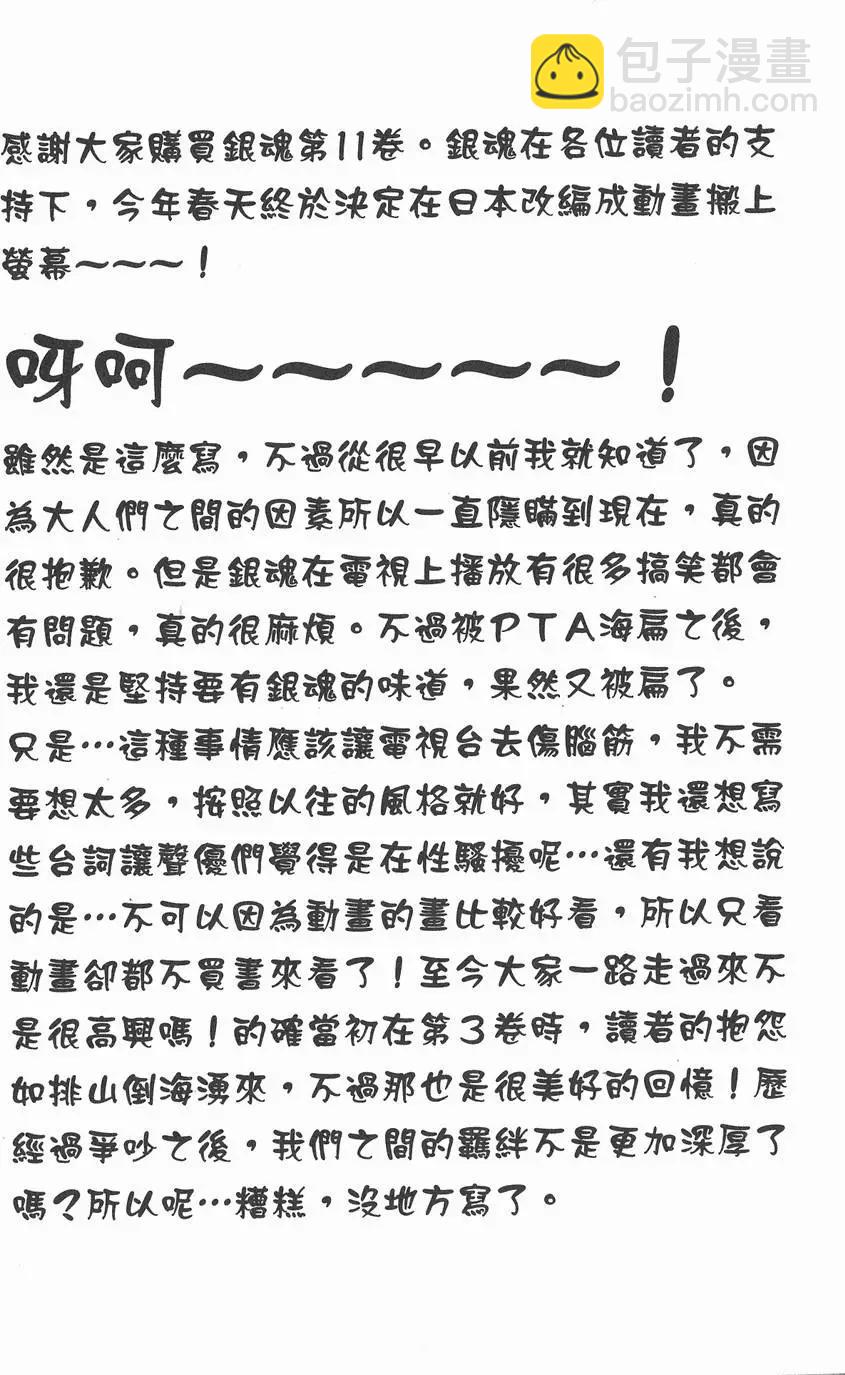 包子漫畫
baozimh.com
感謝大家購買銀魂第11卷。銀魂在各位讀者的支
持下，今年春天終於決定在日本改編成動畫搬上
螢幕～～～！
呀呵～～～～～！
雖然是這麼寫，不過從很早以前我就知道了，因
為大人們之間的因素所以一直隱瞞到現在，真的
很抱歉。但是銀魂在電視上播放有很多搞笑都會
有問題，真的很麻煩。不過被PTA海扁之後，
我還是堅持要有銀魂的味道，果然又被扁了。
只是…這種事情應該讓電視台去傷腦筋，我不需
要想太多，按照以往的風格就好，其實我還想寫
些台詞讓聲優們覺得是在性騷擾呢…還有我想說
的是…不可以因為動畫的畫比較好看，所以只看
動畫卻都不買書來看了！至今大家一路走過來不
是很高興嗎！的確當初在第3卷時，讀者的抱怨
如排山倒海湧來，不過那也是很美好的回憶！歷
經過爭吵之後，我們之間的羈絆不是更加深厚了
嗎？所以呢…糟糕，沒地方寫了。